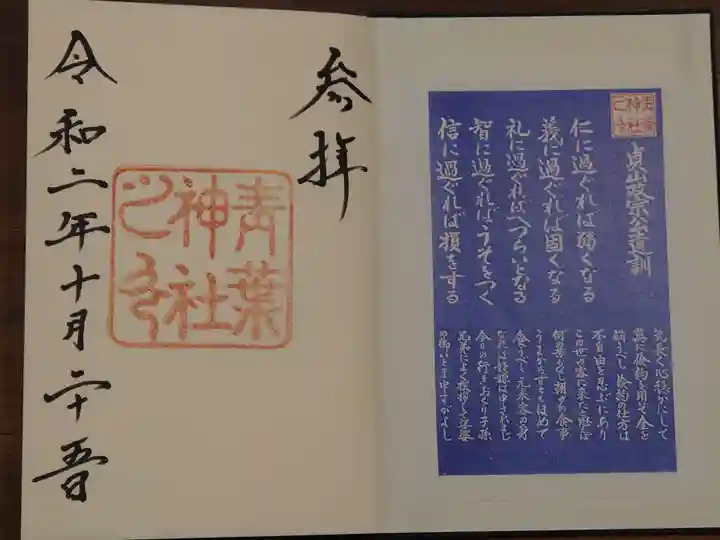 青葉
神社
之印
貞山政宗公遺訓
仁に過ぐれば弱くなる
義に過ぐれば固くなる
礼に過ぐればへつらいとなる
智に過ぐればうそをつく
信に過ぐれば損をする
気長く心穏かにして
萬に倹約を用て金を
備うべし倹約の仕方は
不自由を忍ぶにあり
この世の客に来たと思へば
何の苦もなし朝夕の食事
うまからずともほめて
食うべし元来客の身
なれば好嫌は申されまじ
今日の行をおくり子孫
兄弟によく挨拶して娑婆
の御いとま申すがよし
参拝
青葉
神社
之印
令和二年十月二十五日